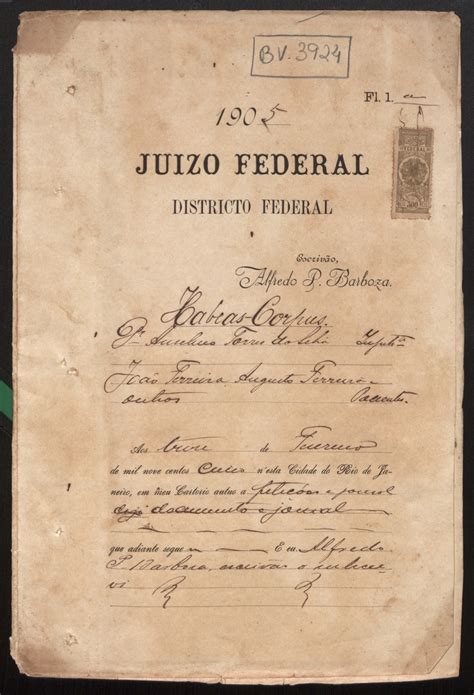 BV. 3924
Fl. 1. a
1905
JUIZO FEDERAL
DISTRICTO FEDERAL
Escrivão,
Alfredo P. Barboza.
Habeas-Corpus.
Dr. Anselmo Torres da Silva
João Ferreira, Augusto Ferreira e
outros Pacientes
Aos de Fevereiro
de mil nove centos cinco n'esta Cidade do Rio de Ja-
neiro, em meu Cartorio autuo a petição e jornal
documento e jornal
que adiante segue E eu, Alfredo
P. Barboza, escrivão o subscre-
vi